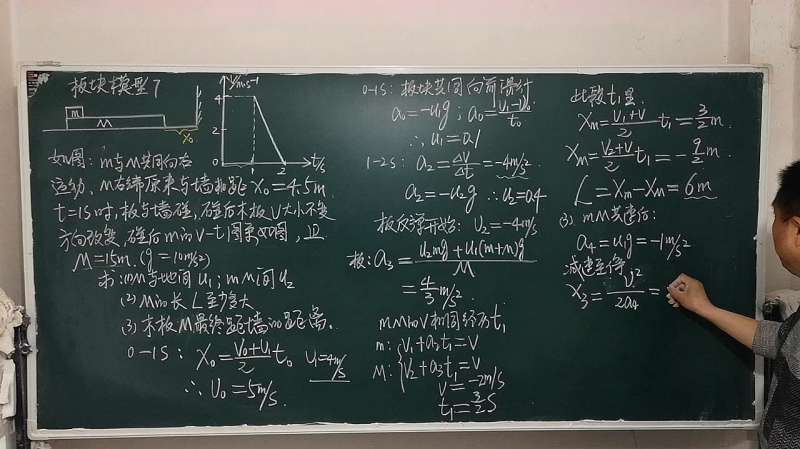 板块模型7
m
M
x₀
V/m·s⁻¹
4
2
0
1
2
t/s
如图: m与M共同向右
运动, M右端原来与墙相距 X₀=4.5m
t=1s时, 板与墙碰, 碰后木板V大小不变
方向改变, 碰后m的V-t图象如图, 且
M=15m. (g=10m/s²)
求: (1) M与地间 u₁; m M间 u₂
(2) M的长 L至少多大
(3) 木板M最终距墙的距离。
0-1S: X₀=(V₀+V₁)/2 t₀ V₁=4m/s
∴ V₀=5m/s.
0-1S: 板块共同向前滑行
a₀=-u₁g; a₀=(V₁-V₀)/t₀
∴ u₁=0.1
1-2S: a₂=ΔV/Δt=-4m/s²
a₂=-u₂g ∴u₂=0.4
板反弹开始: V₂=-4m/s
板: a₃=(u₂mg+u₁(m+M)g)/M
=4/3 m/s².
m M的V相同经历t₁
m: V₁+a₂t₁=V
M: V₂+a₃t₁=V
V=-2m/s
t₁=3/2 S
此段t₁里.
Xm=(V₁+V)/2 t₁=3/2 m.
XM=(V₂+V)/2 t₁=-9/2 m.
L=Xm-XM=6m
(3) m M共速后:
a₄=u₁g=-1m/s²
减速至停
X₃=V²/2a₄=